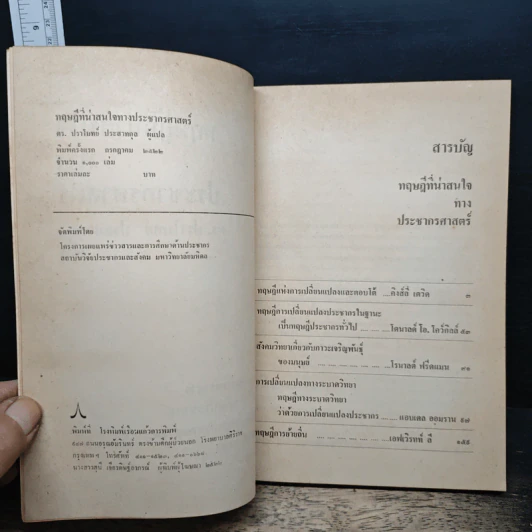 ทฤษฎีที่น่าสนใจทางประชากรศาสตร์
ดร. ปราโมทย์ ประสาทกุล ผู้แปล
พิมพ์ครั้งแรก กรกฎาคม ๒๕๒๒
จำนวน ๑,๐๐๐ เล่ม
ราคาเล่มละ บาท
จัดพิมพ์โดย
โครงการเผยแพร่ข่าวสารและการศึกษาด้านประชากร
สถาบันวิจัยประชากรและสังคม มหาวิทยาลัยมหิดล
พิมพ์ที่ โรงพิมพ์เรือนแก้วการพิมพ์
ถนนอรุณอมรินทร์ ตรงข้ามตึกผู้ป่วยนอก โรงพยาบาลศิริราช
กรุงเทพ ฯ โทรศัพท์
ผู้พิมพ์ผู้โฆษณา
สารบัญ
ทฤษฎีที่น่าสนใจ
ทาง
ประชากรศาสตร์
ทฤษฎีแห่งการเปลี่ยนแปลงและตอบโต้ ...คิงส์ลี่ เดวิด ๓
ทฤษฎีการเปลี่ยนแปลงประชากรในฐานะ
เป็นทฤษฎีประชากรทั่วไป _ _ _ _ โดนาลด์ โอ. โคว์กิลล์ ๕๓
สังคมวิทยาเกี่ยวกับภาวะเจริญพันธุ์
ของมนุษย์ _ _ _ _ โรนาลด์ ฟรีดแมน
การเปลี่ยนแปลงทางระบาดวิทยา
ทฤษฎีทางระบาดวิทยา
ว่าด้วยการเปลี่ยนแปลงประชากร _ _ แอบเดล ออมราน
ทฤษฎีการย้ายถิ่น _ _ _ _ เอฟเวิรทท์ ลี